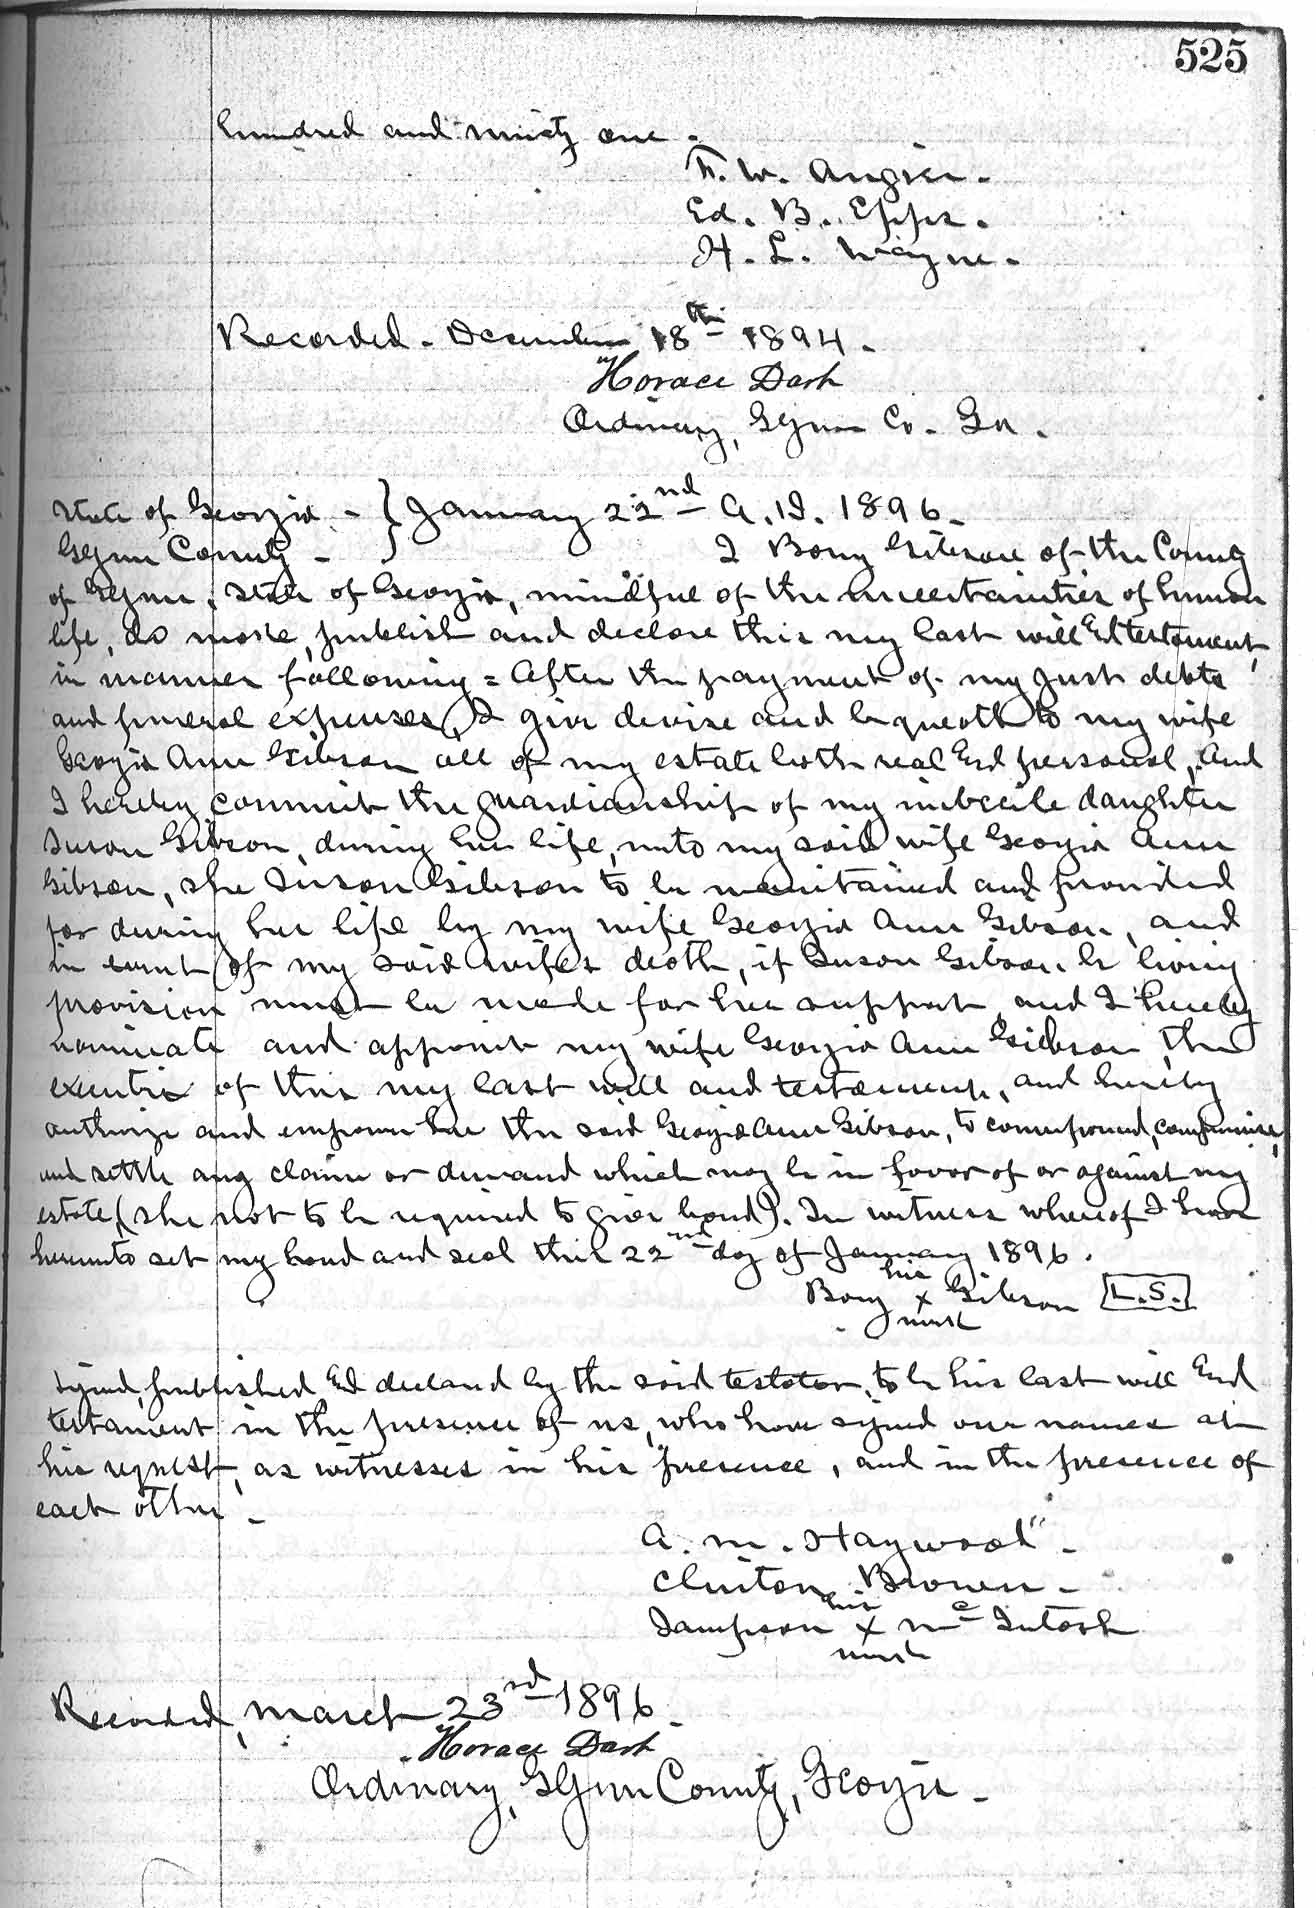 525
hundred and ninety one.
F. W. Angier.
Ed. B. Epps.
H. L. Wayne.
Recorded. December 18th 1894.
Horace Dart
Ordinary, Glynn Co. Ga.
State of Georgia - } January 22nd A.D. 1896.
Glynn County - } I Bony Gibson of the County
of Glynn, State of Georgia, mindful of the uncertainties of human
life, do make, publish and declare this my last will and testament,
in manner following = After the payment of my just debts
and funeral expenses, I give devise and bequeath to my wife
Georgia Ann Gibson all of my estate both real and personal, And
I hereby commit the guardianship of my imbecile daughter
Susan Gibson, during her life, unto my said wife Georgia Ann
Gibson, she Susan Gibson to be maintained and provided
for during her life by my wife Georgia Ann Gibson, and
in event of my said wife's death, if Susan Gibson be living
provision must be made for her support, and I hereby
nominate and appoint my wife Georgia Ann Gibson, the
executrix of this my last will and testament, and hereby
authorize and empower her the said Georgia Ann Gibson, to compound, compromise,
and settle any claim or demand which may be in favor of or against my
estate, (she not to be required to give bond). In witness whereof I have
hereunto set my hand and seal this 22nd day of January 1896.
his
Bony x Gibson L.S.
mark
Signed, published and declared by the said testator, to be his last will and
testament in the presence of us, who have signed our names at
his request, as witnesses in his presence, and in the presence of
each other.
A. M. Haywood".
Clinton Brown.
his
Sampson x Mc Intosh
mark
Recorded, March 23rd 1896.
Horace Dart
Ordinary, Glynn County, Georgia.